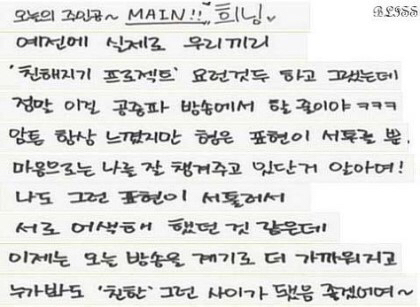 오늘의 주인공~ MAIN!! 희님 BLISS
예전에 실제로 우리끼리
'친해지기 프로젝트' 요런것두 하고 그랬는데
정말 이걸 공중파 방송에서 할 줄이야 ㅋㅋㅋ
암튼 항상 느꼈지만 형은 표현이 서투를 뿐,
마음으로는 나를 잘 챙겨주고 있단거 알아여!
나도 그런 표현이 서툴러서
서로 어색해 했던 것 같은데
이제는 오늘 방송을 계기로 더 가까워지고
누가봐도 '친한' 그런 사이가 됐음 좋겠어여~